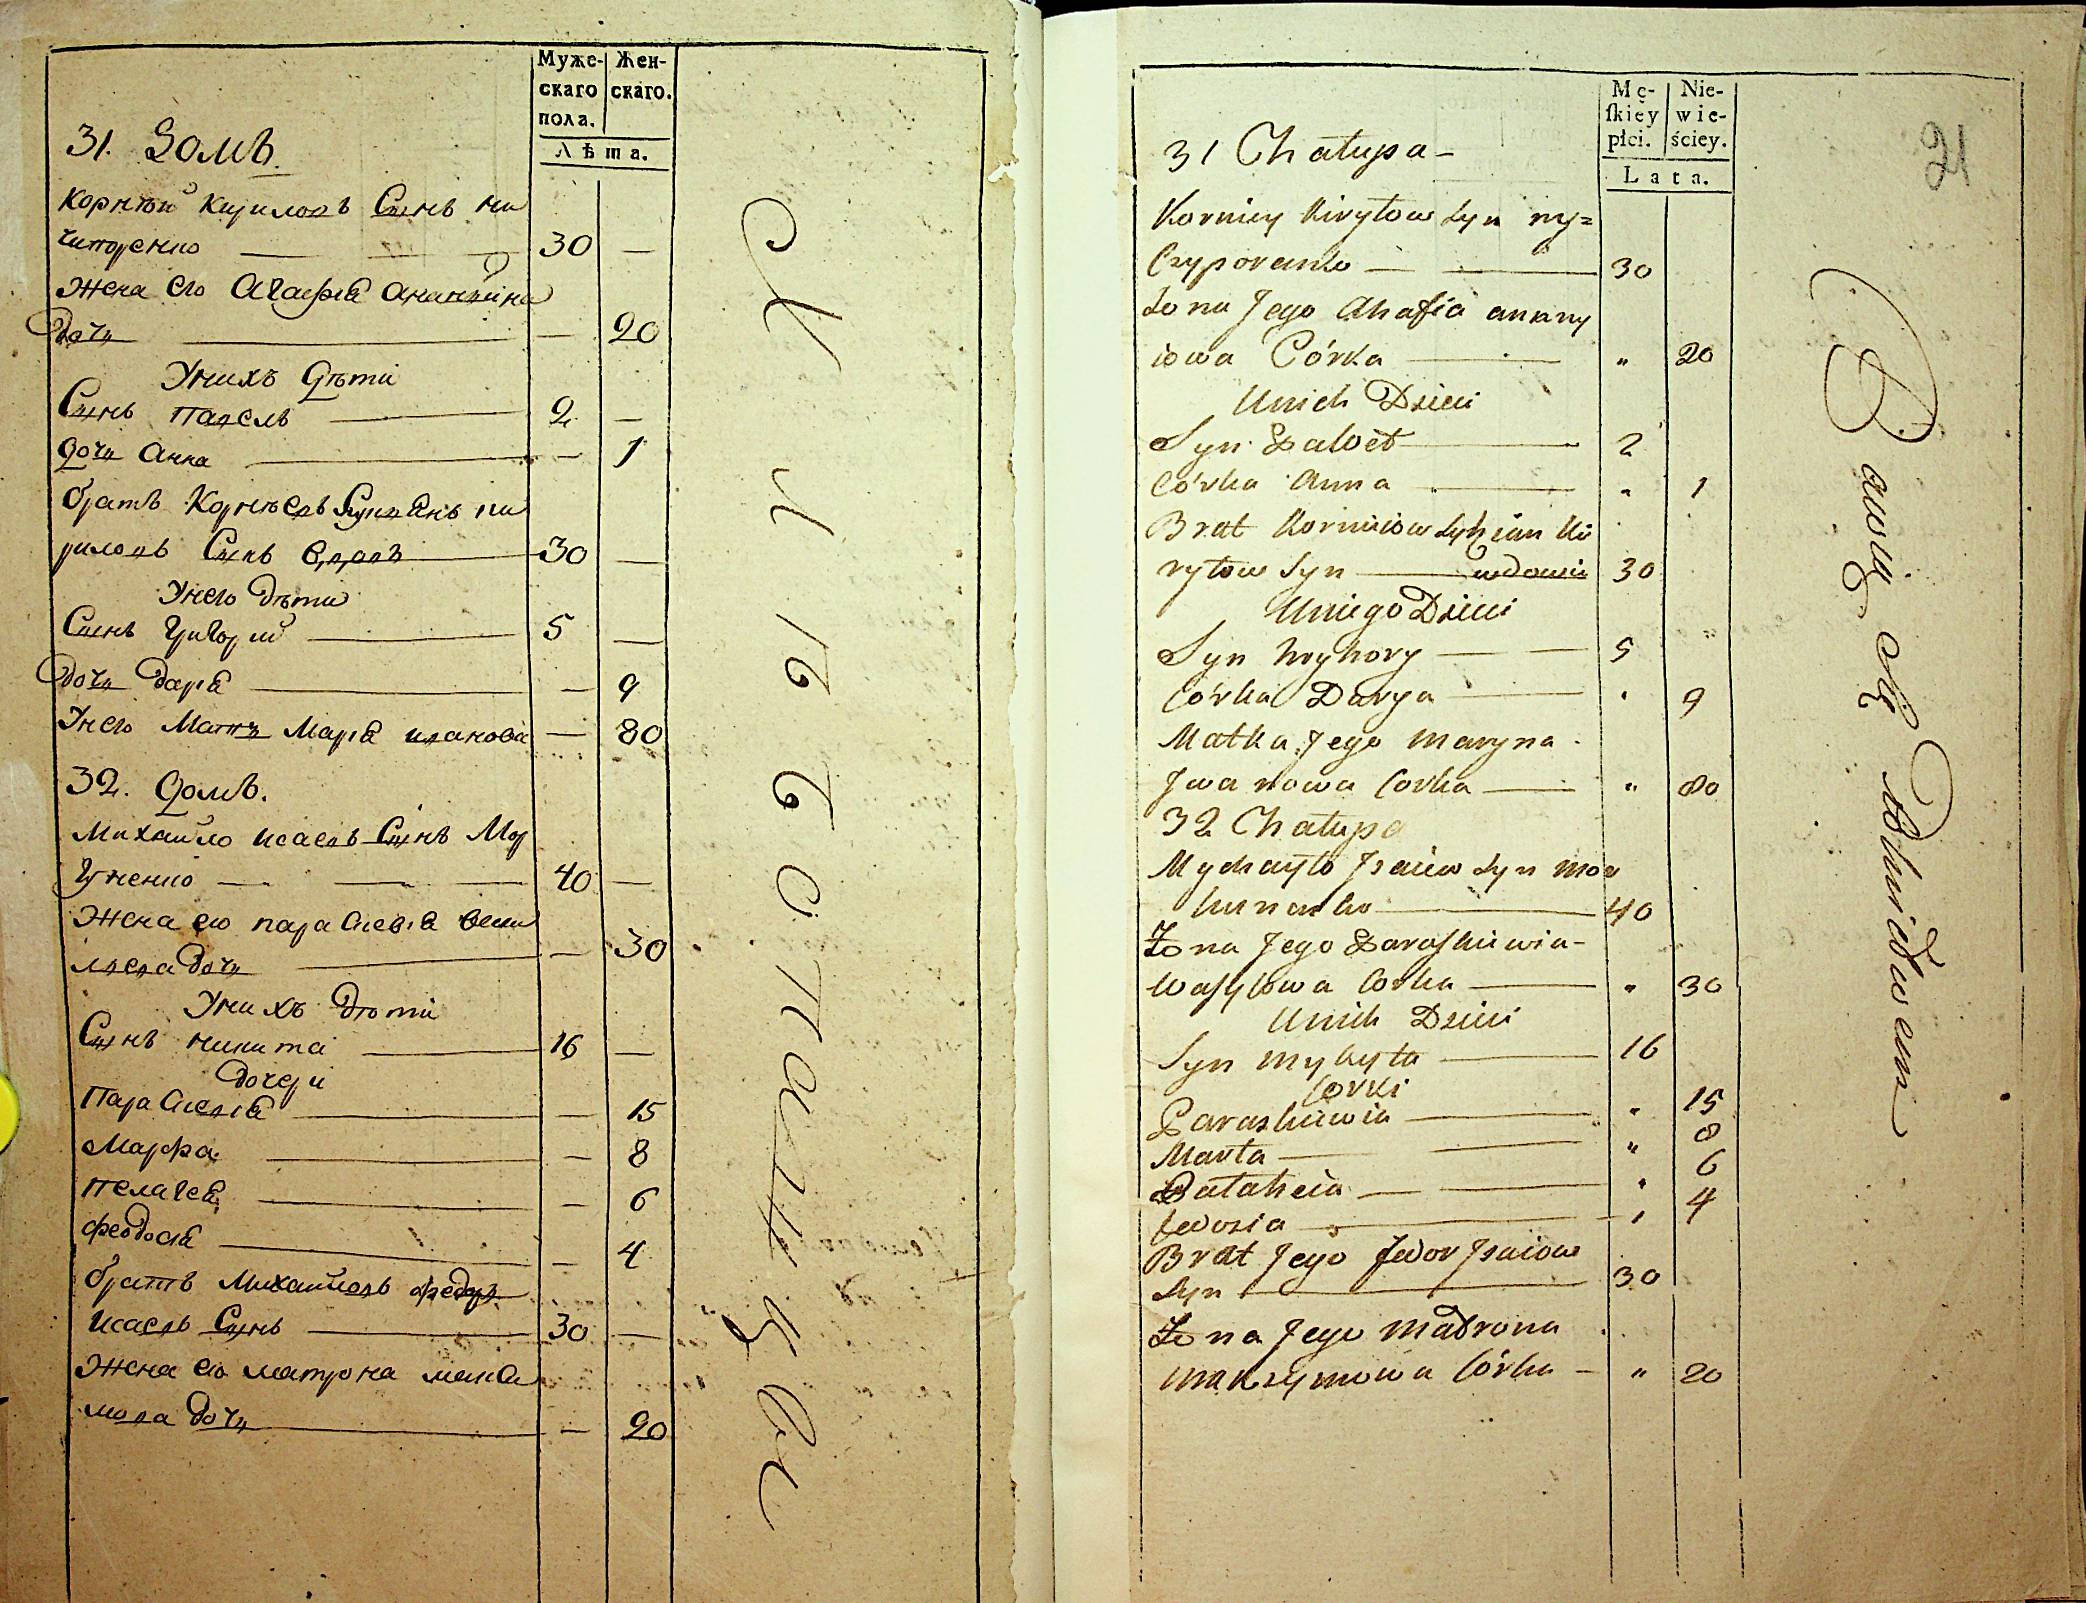 Муже-
скаго
пола.
Жен-
скаго.
Лѣта.
31. Домъ
Корнѣй Кириловъ Сынъ ни
чипоренко — 30 —
Жена его Агафiя Ананiина
дочь — 20
У нихъ Дѣти
Сынъ Павелъ — 2 —
Дочь Анна — 1
братъ Корнѣевъ Лукіянъ ки
риловъ Сынъ вдовъ 30 —
У него дѣти
Сынъ Григорий — 5 —
дочь Дарiя — 9
У него Мать Марiя иванова — 80
32. Домъ.
Михайло Исаевъ Сынъ Мор
гуненко — 40 —
Жена его параскевiя васи
лева дочь — 30
У нихъ дѣти
Сынъ никита — 16 —
дочери
Параскевiя — 15
Марфа — 8
пелагея — 6
феодосiя — 4
братъ Михайловъ федоръ
Исаевъ Сынъ — 30 —
Жена его матрона макси
мова дочь — 20
Mę-
ſkiey
płci.
Nie-
wie-
ściey.
Lata.
21
31 Chałupa —
Korniey Kiryłow Syn ny=
Czyporenko — 30
Żona Jego Ahafia anany
iowa Córka — " 20
U nich Dzieci
Syn Paweł — 2
Córka Anna — " 1
Brat Korniiow Łukian Ki
ryłow Syn — wdowiec 30
U niego Dzieci
Syn hryhory — 5
Córka Darya — " 9
Matka Jego maryna
Jwanowa Corka — " 80
32 Chałupa
Mychayło Jsaiew Syn mor
hunenko — 40
Żona Jego Paraſkiewia —
Waſylowa Corka — " 30
U nich Dzieci
Syn mykyta — 16
Corki
Paraskiewia — " 15
Marta — " 8
Pałaheia — " 6
fedosia — " 4
Brat Jego fedor Jsaiow
Syn — 30
Żona Jego Madrona
maksymowa Córka — " 20